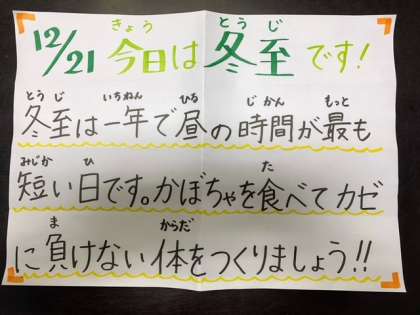 きょう とうじ
12/21 今日は冬至です!
とうじ いちねん ひる じかん もっと
冬至は一年で昼の時間が最も
みじか ひ た
短い日です。かぼちゃを食べてカビ
ま からだ
に負けない体をつくりましょう!!